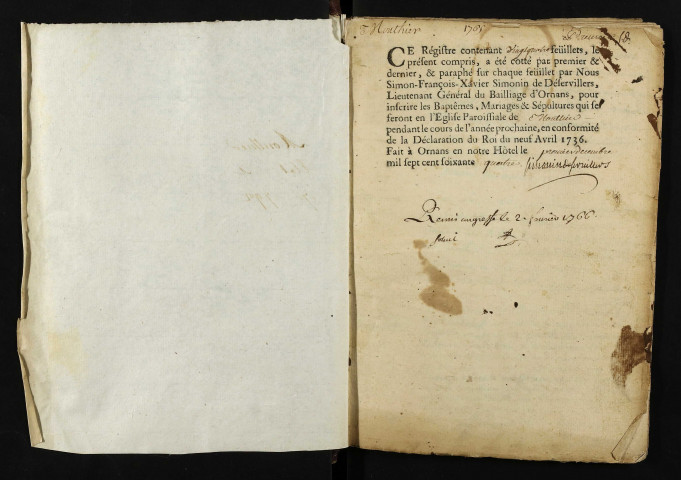 Mouthier 1765
CE Régistre contenant feüillets, le
présent compris, a été cotté par premier &
dernier, & paraphé sur chaque feüillet par Nous
Simon-François-Xavier Simonin de Déservillers,
Lieutenant Général du Bailliage d'Ornans, pour
inscrire les Baptêmes, Mariages & Sépultures qui se
feront en l'Eglise Paroissiale de Mouthier
pendant le cours de l'année prochaine, en conformité
de la Déclaration du Roi du neuf Avril 1736.
Fait à Ornans en notre Hôtel le premier decembre
mil sept cent soixante quatre Simonin de servillers
Remis au greffe le 2e fevrier 1766